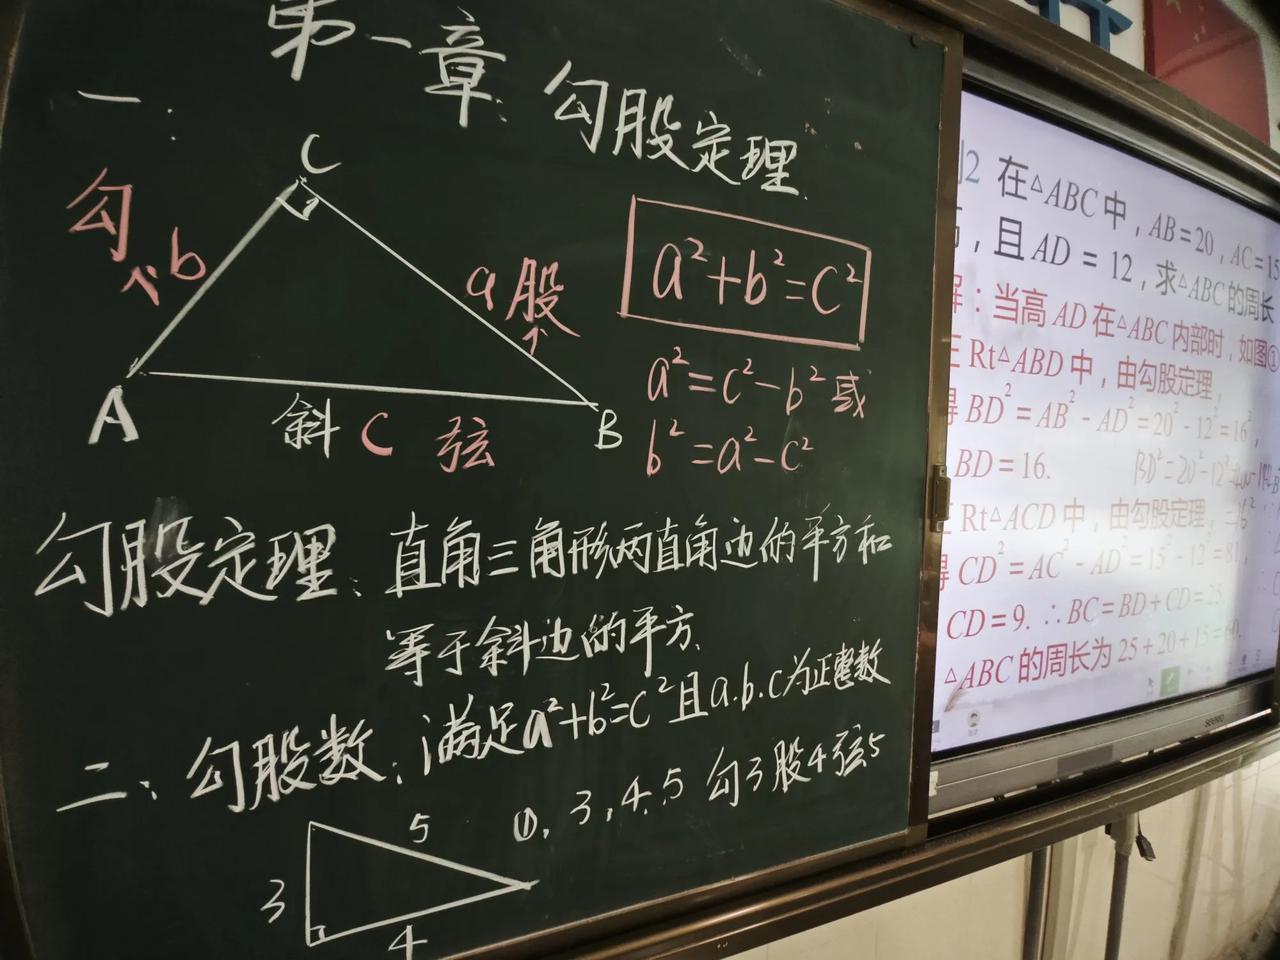 第一章 勾股定理
一:
C
勾
b
a 股
A
斜 c 弦
B
a²+b²=c²
a²=c²-b² 或
b²=a²-c²
勾股定理: 直角三角形两直角边的平方和
等于斜边的平方.
二: 勾股数: 满足a²+b²=c²且a.b.c为正整数
①. 3, 4, 5 勾3股4弦5
5
3
4
2 在△ABC中，AB=20，AC=15
，且AD=12，求△ABC的周长
：当高AD在△ABC内部时，如图①
Rt△ABD中，由勾股定理，
BD²=AB²-AD²=20²-12²=16²，
BD=16.
BD²=20²-12²
Rt△ACD中，由勾股定理，
CD²=AC²-AD²=15²-12²=81，
CD=9. ∴BC=BD+CD=25.
△ABC的周长为25+20+15=60.
seewo